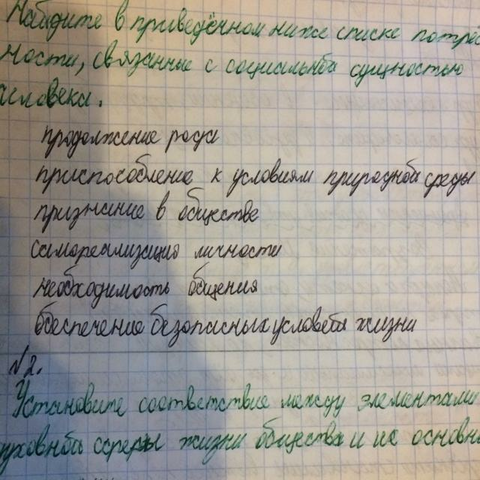 Найдите в приведённом ниже списке потреб
ности, связанные с социальной сущностью
человека.
продолжение рода
приспособление к условиям природной среды
признание в обществе
самореализация личности
необходимость общения
обеспечение безопасных условий жизни
№2.
Установите соответствие между элементами
духовной сферы жизни общества и их основны